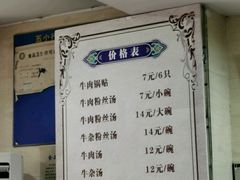 五小
价格表
牛肉锅贴 7元/6只
牛肉粉丝汤 7元/小碗
牛肉粉丝汤 14元/大碗
牛杂粉丝汤 14元/碗
牛肉汤 12元/碗
牛杂汤 12元/碗